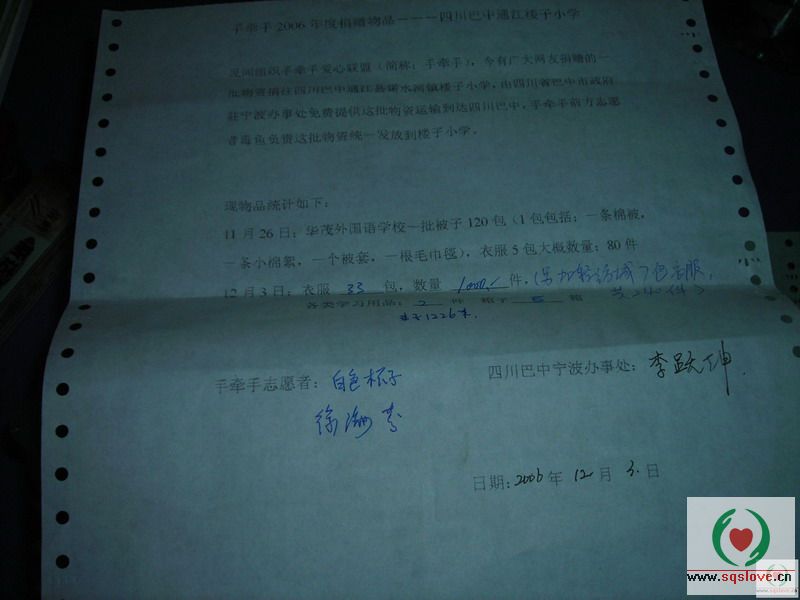 手牵手2006年度捐赠物品————四川巴中通江楼子小学
民间组织手牵手爱心联盟（简称：手牵手），今有广大网友捐赠的一
批物资捐往四川巴中通江县诺水河镇楼子小学，由四川省巴中市政府
驻宁波办事处免费提供这批物资运输到达四川巴中，手牵手前方志愿
者毒鱼负责这批物资统一发放到楼子小学。
现物品统计如下：
11月26日：华茂外国语学校一批被子120包（1包包括：一条棉被，
一条小棉絮，一个被套，一根毛巾毯），衣服5包大概数量：80件
12月3日：衣服 33 包，数量 1000 件，
各类学习用品： 2 件 箱子 5 箱
手牵手志愿者：白色杯子
四川巴中宁波办事处：李跃坤
徐海
日期：2006年 12 月 3 日
www.sqslove.cn